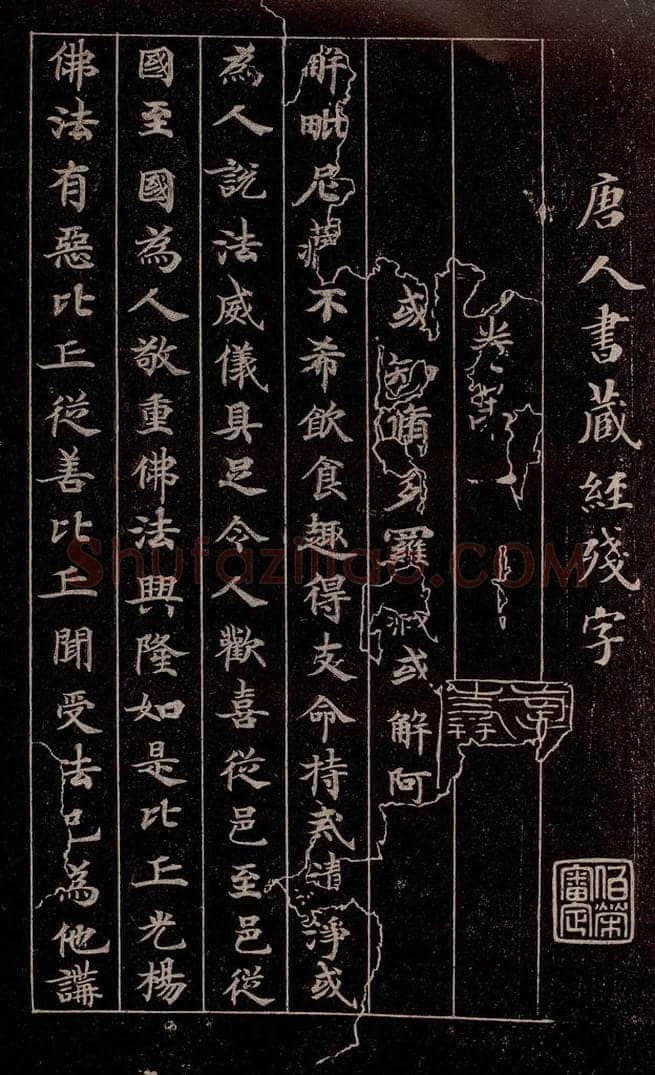 唐人書蔵經殘字
或 脩多羅蔵或解阿
解毗尼蔵不希飲食趣得支命持戒清淨或
為人說法威儀具足令人歡喜從邑至邑從
國至國為人敬重佛法興隆如是比丘光楊
佛法有惡比丘從善比丘聞受法已為他講
Shufaziliao.COM